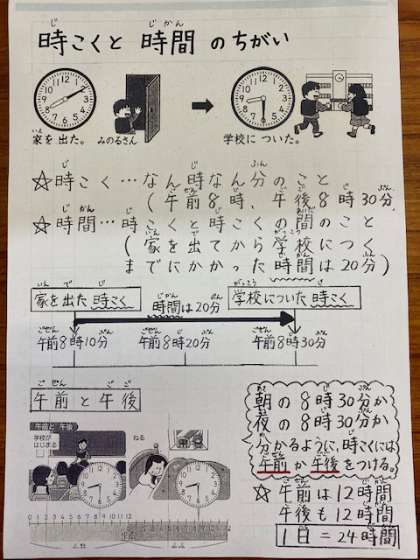 時こくと 時間 のちがい
家を出た。 みのるさん 学校に ついた。
☆時こく…なん時なん分のこと
(午前8時、午後8時30分
☆時間…時こくと時こくの間のこと
(家を出てから学校につく
までにかかった時間は20分)
家を出た 時こく 時間は20分 学校についた 時こく
午前8時10分 午前8時20分 午前8時30分
午前と午後
朝の8時30分か
夜の8時30分か
分かるように、時こくには
午前か午後をつける。
午前と午後
学校が
はじまる
ねる
0 1 2 3 4 5 6 7 8 9 10 11 12
☆午前は12時間
午後も12時間
1日=24時間